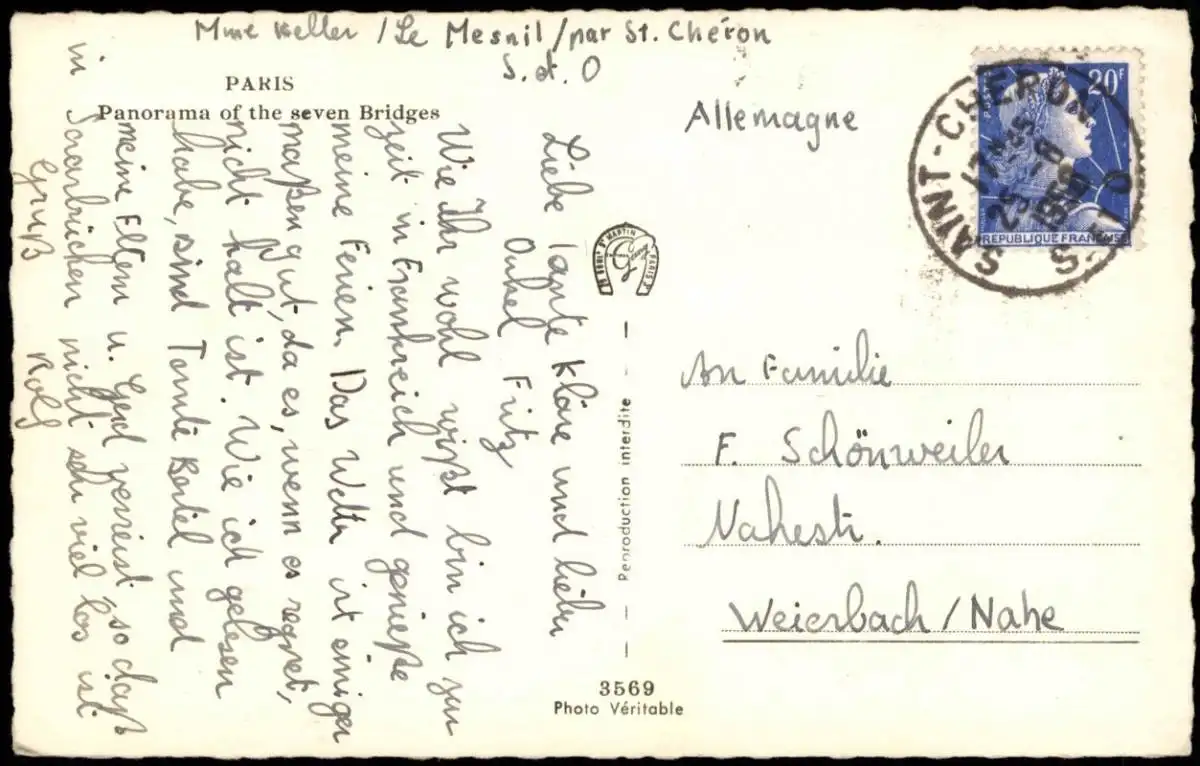 Mme Keller / Le Mesnil / par St. Chéron
S. et. O
PARIS
Panorama of the seven Bridges
Liebe Tante Kläre und lieber
Onkel Fritz
Wie Ihr wohl wißt bin ich zur
Zeit in Frankreich und genieße
meine Ferien. Das Wetter ist einiger
maßen gut, da es, wenn es regnet,
nicht kalt ist. Wie ich gelesen
habe, sind Tante Bertel und
meine Eltern u. Gerd verreist so daß
in Saarbrücken nicht sehr viel los ist
Gruß Rolf
Allemagne
20F
POSTES
REPUBLIQUE FRANÇAISE
SAINT-CHERON
S-ET-O
An Familie
F. Schönweiler
Nahestr.
Weierbach / Nahe
Reproduction interdite
3569
Photo Véritable